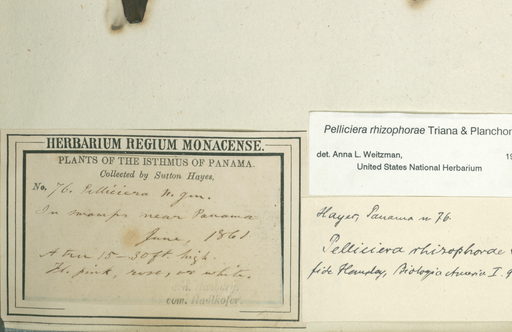 HERBARIUM REGIUM MONACENSE.
PLANTS OF THE ISTHMUS OF PANAMA.
Collected by Sutton Hayes,
No. 76. Pelliciera N. gen.
In swamps near Panama
June, 1861
A tree 15-30 ft. high.
Fl. pink, rose, or white.
com. Radlkofer.
Pelliciera rhizophorae Triana & Planchon
det. Anna L. Weitzman,
19
United States National Herbarium
Hayes, Panama n 76.
Pelliciera rhizophorae
fide Hemsley, Biologia I.